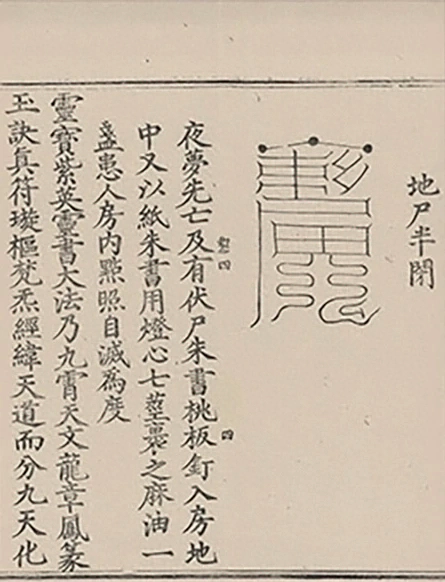 地尸半閉
夜夢先亡及有伏尸朱書桃板釘入房地
四
中又以紙朱書用燈心七莖裹之麻油一
盞患人房内點照自滅為度
靈寳紫英靈書大法乃九霄天文龍章鳳篆
玉訣真符璇樞梵炁經緯天道而分九天化